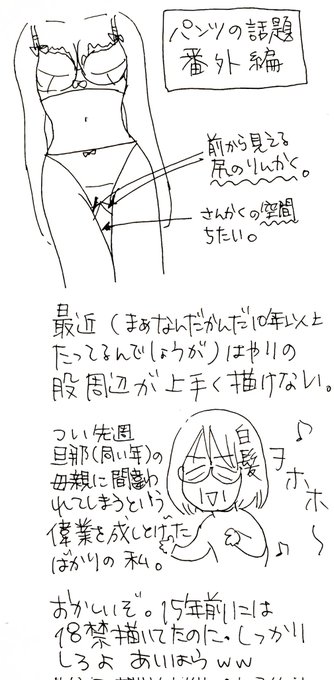 パンツの話題
番外編
前から見える
尻のりんかく。
さんかくの空間
ちたい。
最近(まぁなんだかんだ10年以上
たってるんでしょうが)はやりの
股周辺が上手く描けない。
つい先週
旦那(同い年)の
母親に間違わ
れてしまうという
偉業を成しとげた
ばかりの私。
白髪
♪
ヲホホ~
♪
おかしいぞ。15年前には
18禁描いてたのに。しっかり
しろよ あいはらww